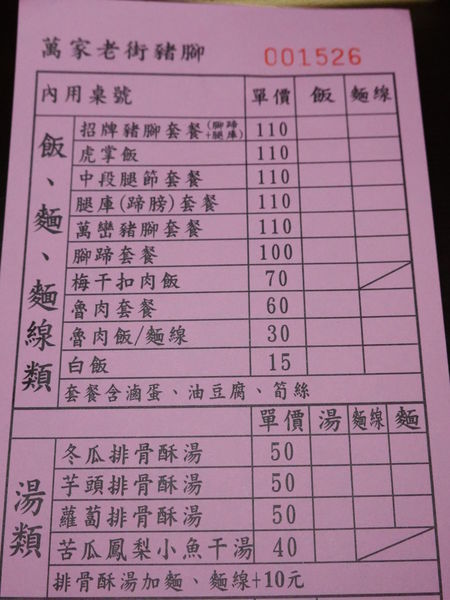 萬家老街豬腳 001526
內用桌號 單價 飯 麵線
飯、麵、麵線類
招牌豬腳套餐(腳蹄+腿庫) 110
虎掌飯 110
中段腿節套餐 110
腿庫(蹄膀)套餐 110
萬巒豬腳套餐 110
腳蹄套餐 100
梅干扣肉飯 70
魯肉套餐 60
魯肉飯/麵線 30
白飯 15
套餐含滷蛋、油豆腐、筍絲
單價 湯 麵線 麵
湯類
冬瓜排骨酥湯 50
芋頭排骨酥湯 50
蘿蔔排骨酥湯 50
苦瓜鳳梨小魚干湯 40
排骨酥湯加麵、麵線+10元